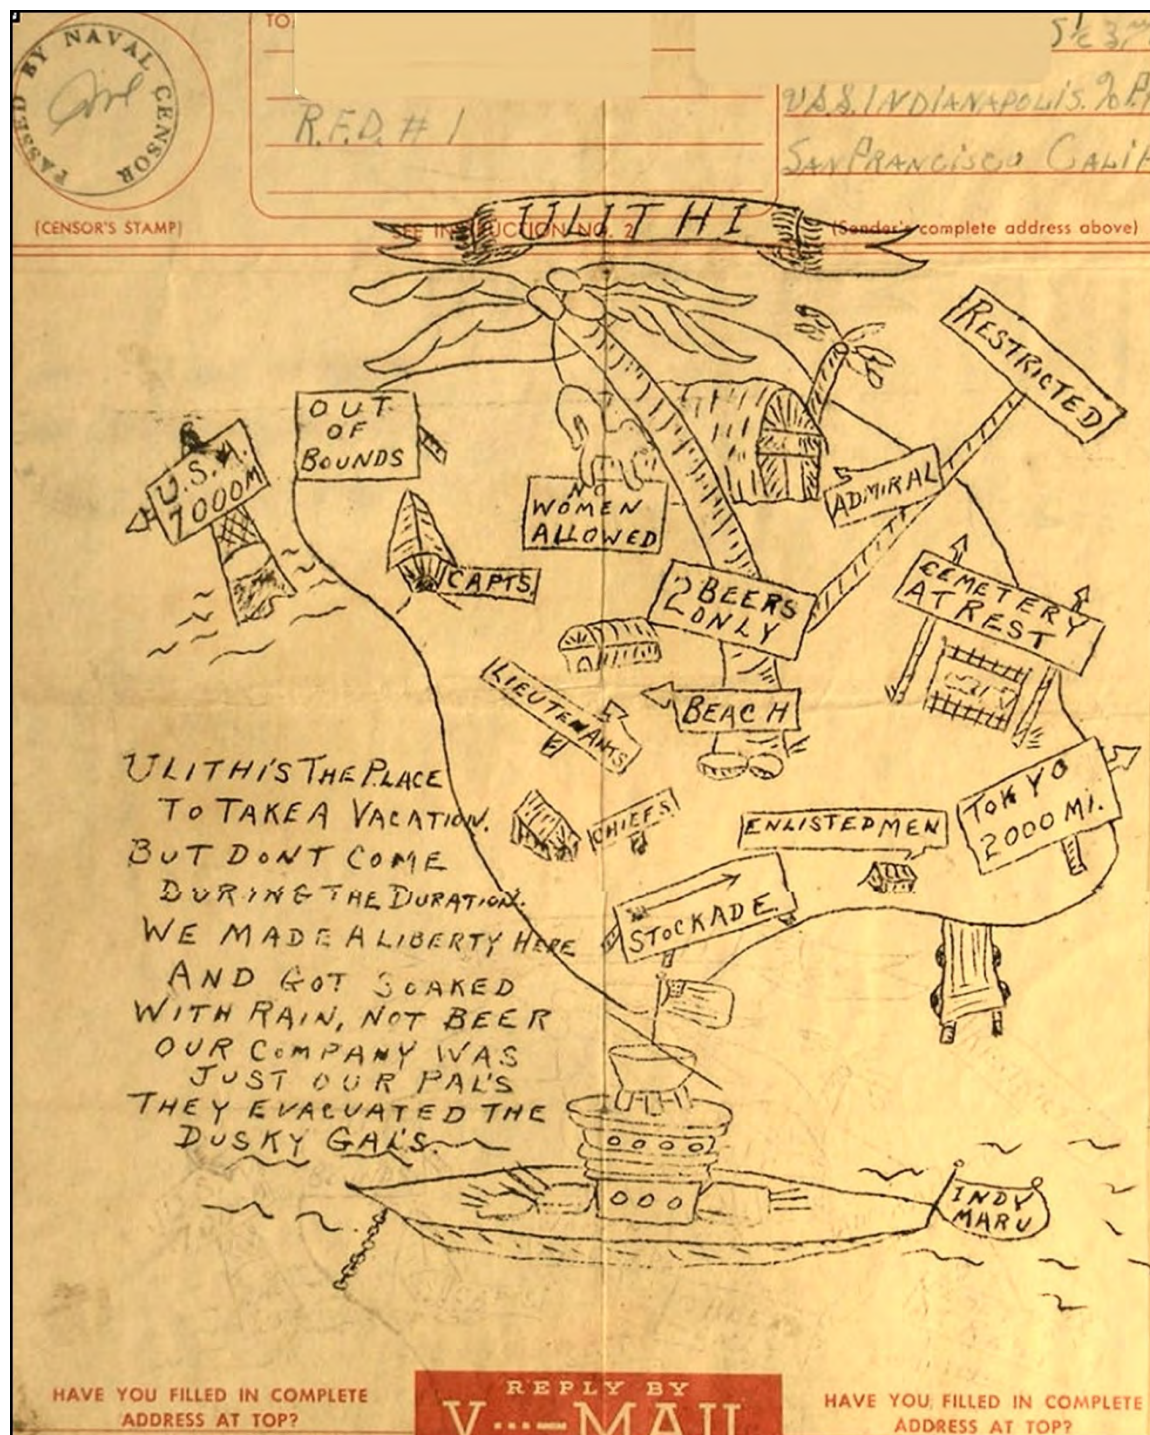 PASSED BY NAVAL CENSOR
(CENSOR'S STAMP)
TO:
R.F.D. # 1
U.S.S. INDIANAPOLIS. %
SAN FRANCISCO CALIF
SEE INSTRUCTION NO. 2
(Sender's complete address above)
ULITHI
RESTRICTED
OUT
OF
BOUNDS
U.S.A.
7000 M
NO
WOMEN
ALLOWED
ADMIRAL
CAPTS.
2 BEERS
ONLY
CEMETERY
AT REST
LIEUTENANTS
BEACH
CHIEFS
ENLISTED MEN
TOKYO
2000 MI.
STOCKADE
ULITHI'S THE PLACE
TO TAKE A VACATION.
BUT DONT COME
DURING THE DURATION.
WE MADE A LIBERTY HERE
AND GOT SOAKED
WITH RAIN, NOT BEER
OUR COMPANY WAS
JUST OUR PAL'S
THEY EVACUATED THE
DUSKY GAL'S.
INDY
MARU
HAVE YOU FILLED IN COMPLETE
ADDRESS AT TOP?
REPLY BY
V···—MAIL
HAVE YOU FILLED IN COMPLETE
ADDRESS AT TOP?